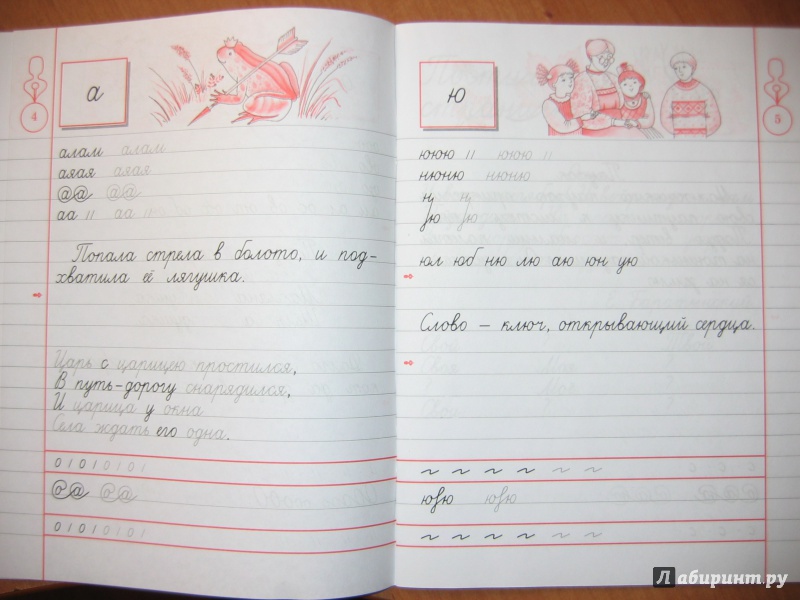 4
а
алам алам
аяая аяая
@@ @@
аа // аа //
Попала стрела в болото, и под-
хватила её лягушка.
Царь с царицею простился,
В путь-дорогу снарядился,
И царица у окна
Села ждать его одна.
0 1 0 1 0 1 0 1
@@ @@
0 1 0 1 0 1 0 1
5
ю
ююю // ююю //
нюню нюню
юл юб ню лю аю юн ую
Слово — ключ, открывающий сердца.
~ ~ ~ ~ ~ ~
~ ~ ~ ~ ~ ~
Лабиринт.ру